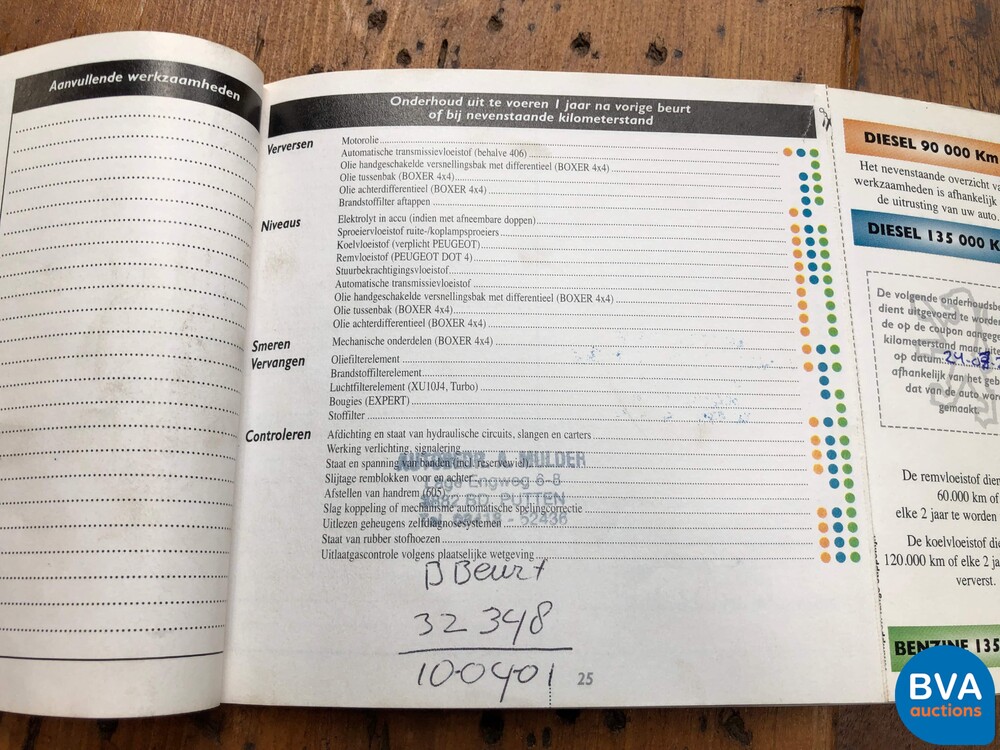 Aanvullende werkzaamheden
Onderhoud uit te voeren 1 jaar na vorige beurt
of bij nevenstaande kilometerstand
Verversen
Motorolie
Automatische transmissievloeistof (behalve 406)
Olie handgeschakelde versnellingsbak met differentieel (BOXER 4x4)
Olie tussenbak (BOXER 4x4)
Olie achterdifferentieel (BOXER 4x4)
Brandstoffilter aftappen
Niveaus
Elektrolyt in accu (indien met afneembare doppen)
Sproeiervloeistof ruite-/koplampsproeiers
Koelvloeistof (verplicht PEUGEOT)
Remvloeistof (PEUGEOT DOT 4)
Stuurbekrachtigingsvloeistof
Automatische transmissievloeistof
Olie handgeschakelde versnellingsbak met differentieel (BOXER 4x4)
Olie tussenbak (BOXER 4x4)
Olie achterdifferentieel (BOXER 4x4)
Smeren
Mechanische onderdelen (BOXER 4x4)
Vervangen
Oliefilterelement
Brandstoffilterelement
Luchtfilterelement (XU10J4, Turbo)
Bougies (EXPERT)
Stoffilter
Controleren
Afdichting en staat van hydraulische circuits, slangen en carters
Werking verlichting, signalering
Staat en spanning van banden (incl. reservewiel)
Slijtage remblokken voor en achter
Afstellen van handrem (605)
Slag koppeling of mechanisme automatische spelingcorrectie
Uitlezen geheugens zelfdiagnosesystemen
Staat van rubber stofhoezen
Uitlaatgascontrole volgens plaatselijke wetgeving
AUTOBEDR. A. MULDER
Lage Engweg 6-8
3882 BD. PUTTEN
Tel. 03418 - 52436
B Beurt
32 348
10-04-01
25
DIESEL 90 000 Km
Het nevenstaande overzicht
werkzaamheden is afhankelijk
de uitrusting van uw auto.
DIESEL 135 000 K
De volgende onderhoudsbe
dient uitgevoerd te worden
de op de coupon aangege
kilometerstand maar uite
op datum:
afhankelijk van het geb
dat van de auto word
gemaakt.
De remvloeistof dien
60.000 km of
elke 2 jaar te worden
De koelvloeistof die
120.000 km of elke 2 ja
ververst.
BENZINE 135
BVA
auctions